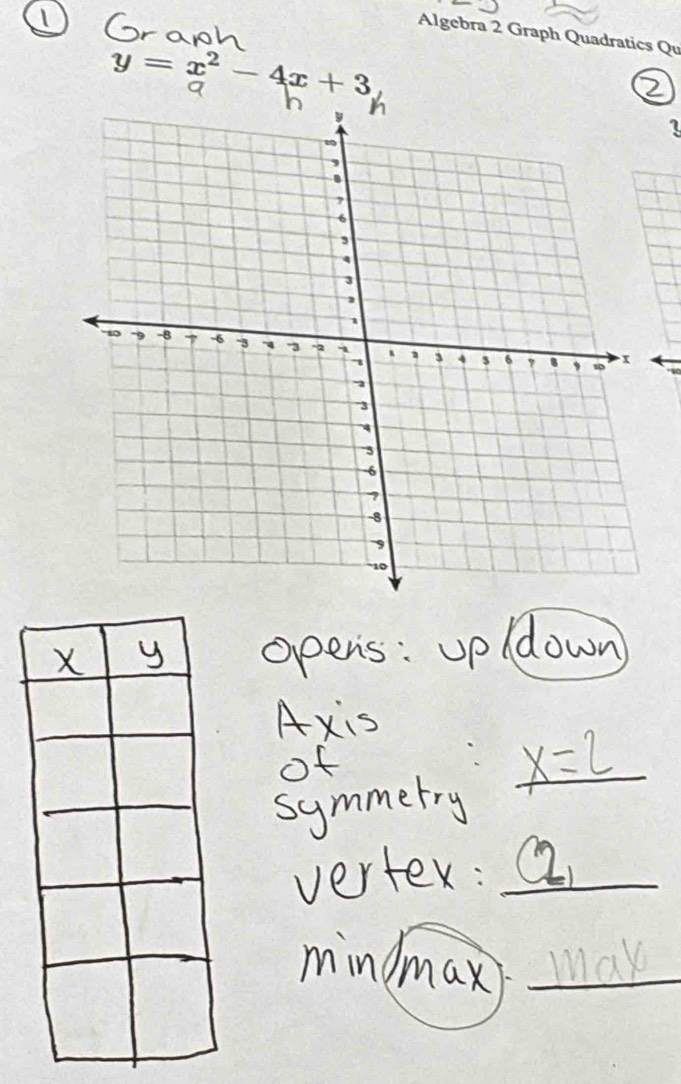 ① Graph
Algebra 2 Graph Quadratics Qu
y = x² - 4x + 3
a h h
②
y
10
9
8
7
6
5
4
3
2
1
-10 -9 -8 -7 -6 -5 -4 -3 -2 -1 1 2 3 4 5 6 7 8 9 10 x
-10
-1
-2
-3
-4
-5
-6
-7
-8
-9
-10
x y
opens: up/down
Axis
of : x=2
symmetry
vertex: (2,
min/max: max